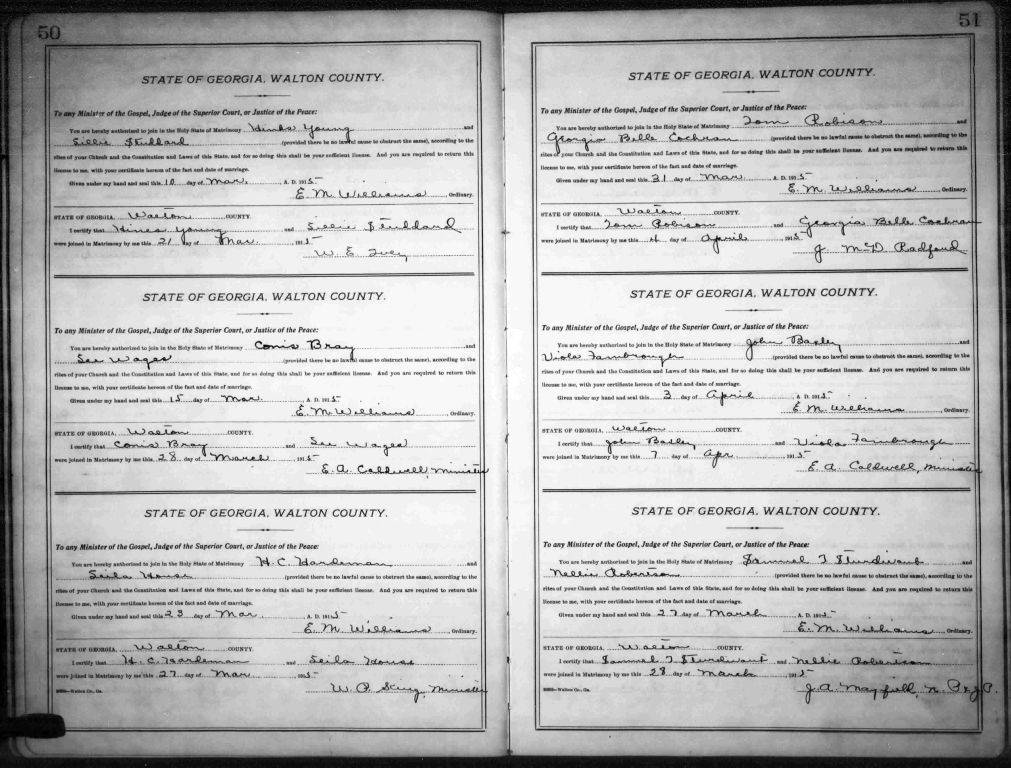 50
STATE OF GEORGIA, WALTON COUNTY.
To any Minister of the Gospel, Judge of the Superior Court, or Justice of the Peace:
You are hereby authorized to join in the Holy State of Matrimony Hines Young and
Lillie Studdard (provided there be no lawful cause to obstruct the same), according to the
rites of your Church and the Constitution and Laws of this State, and for so doing this shall be your sufficient license. And you are required to return this
license to me, with your certificate hereon of the fact and date of marriage.
Given under my hand and seal this 10 day of Mar. A. D. 1915
E. M. Williams Ordinary.
STATE OF GEORGIA, Walton COUNTY.
I certify that Hines Young and Lillie Studdard
were joined in Matrimony by me this 21 day of Mar. 1915
W. E. Ivey
STATE OF GEORGIA, WALTON COUNTY.
To any Minister of the Gospel, Judge of the Superior Court, or Justice of the Peace:
You are hereby authorized to join in the Holy State of Matrimony Conis Bray and
See Wages (provided there be no lawful cause to obstruct the same), according to the
rites of your Church and the Constitution and Laws of this State, and for so doing this shall be your sufficient license. And you are required to return this
license to me, with your certificate hereon of the fact and date of marriage.
Given under my hand and seal this 15 day of Mar A. D. 1915
E. M. Williams Ordinary.
STATE OF GEORGIA, Walton COUNTY.
I certify that Conis Bray and See Wages
were joined in Matrimony by me this 28 day of March 1915
E. A. Caldwell, Minister
STATE OF GEORGIA, WALTON COUNTY.
To any Minister of the Gospel, Judge of the Superior Court, or Justice of the Peace:
You are hereby authorized to join in the Holy State of Matrimony H. C. Hardeman and
Leila House (provided there be no lawful cause to obstruct the same), according to the
rites of your Church and the Constitution and Laws of this State, and for so doing this shall be your sufficient license. And you are required to return this
license to me, with your certificate hereon of the fact and date of marriage.
Given under my hand and seal this 23 day of Mar. A. D. 1915
E. M. Williams Ordinary.
STATE OF GEORGIA, Walton COUNTY.
I certify that H. C. Hardeman and Leila House
were joined in Matrimony by me this 27 day of Mar 1915
W. P. King, Minister
Walton Co., Ga.
51
STATE OF GEORGIA, WALTON COUNTY.
To any Minister of the Gospel, Judge of the Superior Court, or Justice of the Peace:
You are hereby authorized to join in the Holy State of Matrimony Tom Robison and
Georgia Belle Cochran (provided there be no lawful cause to obstruct the same), according to the
rites of your Church and the Constitution and Laws of this State, and for so doing this shall be your sufficient license. And you are required to return this
license to me, with your certificate hereon of the fact and date of marriage.
Given under my hand and seal this 31 day of Mar A. D. 1915
E. M. Williams Ordinary.
STATE OF GEORGIA, Walton COUNTY.
I certify that Tom Robison and Georgia Belle Cochran
were joined in Matrimony by me this 4 day of April 1915
J. McD Radford
STATE OF GEORGIA, WALTON COUNTY.
To any Minister of the Gospel, Judge of the Superior Court, or Justice of the Peace:
You are hereby authorized to join in the Holy State of Matrimony John Baxley and
Viola Fambrough (provided there be no lawful cause to obstruct the same), according to the
rites of your Church and the Constitution and Laws of this State, and for so doing this shall be your sufficient license. And you are required to return this
license to me, with your certificate hereon of the fact and date of marriage.
Given under my hand and seal this 3 day of April A. D. 1915
E. M. Williams Ordinary.
STATE OF GEORGIA, Walton COUNTY.
I certify that John and Viola Fambrough
were joined in Matrimony by me this 7 day of Apr 1915
E. A. Caldwell, Minister
STATE OF GEORGIA, WALTON COUNTY.
To any Minister of the Gospel, Judge of the Superior Court, or Justice of the Peace:
You are hereby authorized to join in the Holy State of Matrimony Samuel T Sturdivant and
Nellie Robertson (provided there be no lawful cause to obstruct the same), according to the
rites of your Church and the Constitution and Laws of this State, and for so doing this shall be your sufficient license. And you are required to return this
license to me, with your certificate hereon of the fact and date of marriage.
Given under my hand and seal this 27 day of March A. D. 1915
E. M. Williams Ordinary.
STATE OF GEORGIA, Walton COUNTY.
I certify that Samuel T Sturdivant and Nellie Robertson
were joined in Matrimony by me this 28 day of March 1915
Walton Co., Ga. J. A. Mayfield, N. P. & J. P.